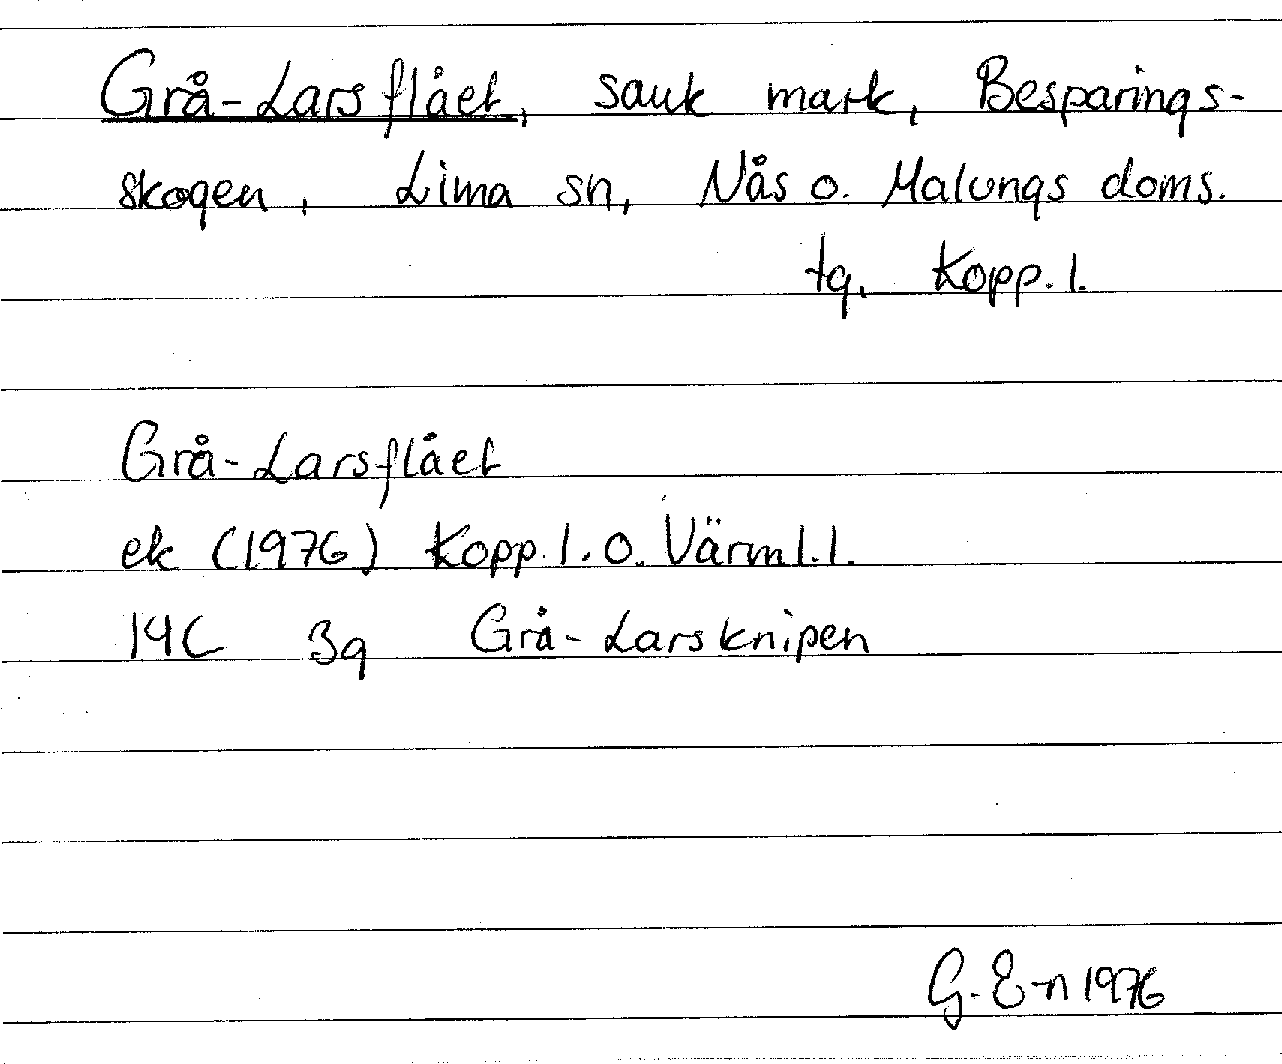 Grå-Larsflået, sank mark, Besparings-
skogen, Lima sn, Nås o. Malungs doms.
tg, Kopp. l.
Grå-Larsflået
ek (1976) Kopp. l. o. Värml. l.
14C 3g Grå-Larsknipen
G. E-n 1976